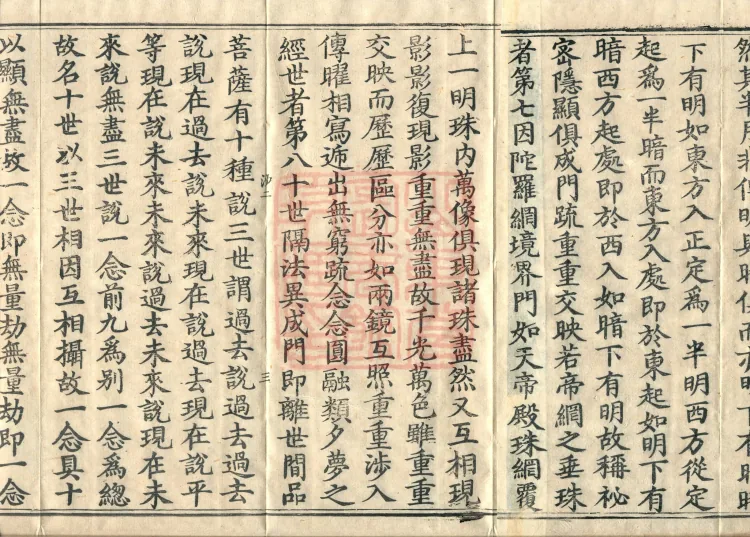 下有明如東方入正定爲一半明西方從定
起爲一半暗而東方入處即於東起如明下有
暗西方起處即於西入如暗下有明故稱祕
密隱顯俱成門疏重重交映若帝網之垂珠
者第七因陀羅網境界門如天帝殿珠網覆
上一明珠內萬像俱現諸珠盡然又互相現
影影復現影重重無盡故千光萬色雖重重
交映而歷歷區分亦如兩鏡互照重重涉入
傳曜相寫遞出無窮疏念念圓融類夕夢之
經世者第八十世隔法異成門即離世間品
菩薩有十種說三世謂過去說過去過去
說現在過去說未來現在說過去現在說平
等現在說未來未來說過去未來說現在未
來說無盡三世說一念前九爲別一念爲總
故名十世以三世相因互相攝故一念具十
以顯無盡故一念即無量劫無量劫即一念